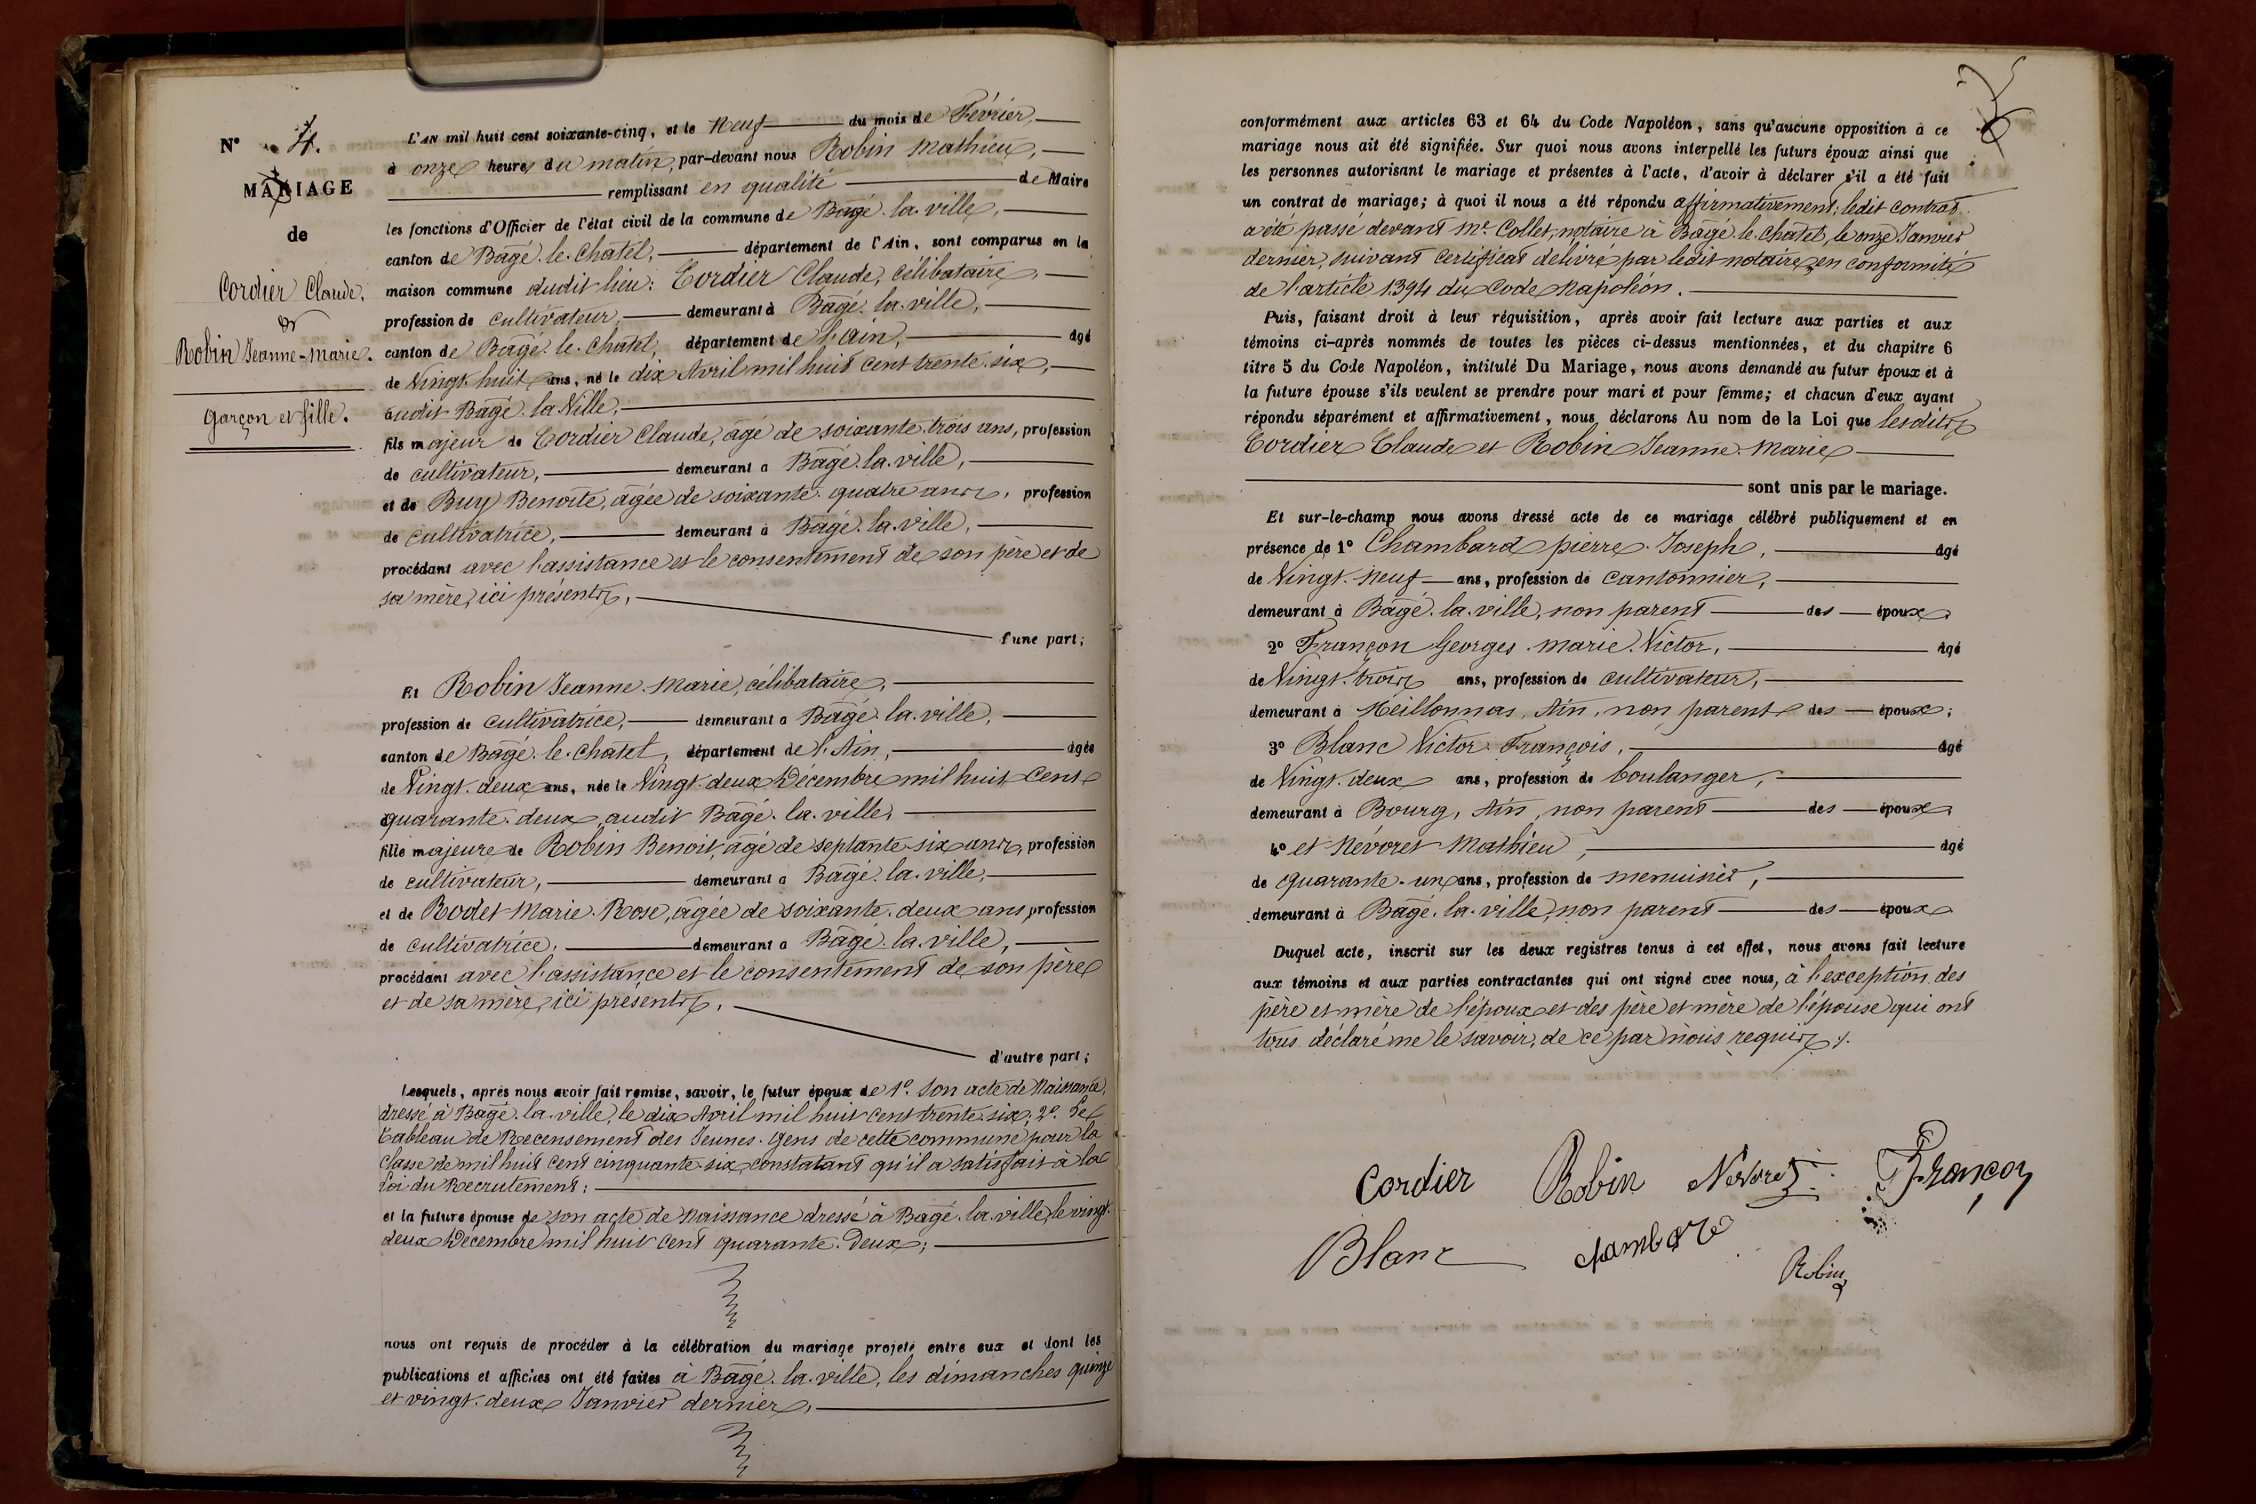 N° 4.
MARIAGE
de
Cordier Claude,
et
Robin Jeanne-Marie.
Garçon et fille.
L'AN mil huit cent soixante-cinq, et le Neuf du mois de Février,
à onze heures du matin, par-devant nous Robin Mathieu,
remplissant en qualité de Maire
les fonctions d'Officier de l'état civil de la commune de Bâgé-la-ville,
canton de Bâgé-le-Châtel, département de l'Ain, sont comparus en la
maison commune dudit lieu: Cordier Claude, célibataire,
profession de cultivateur, demeurant à Bâgé-la-ville,
canton de Bâgé-le-Châtel, département de l'ain, âgé
de Vingt-huit ans, né le dix Avril mil huit cent trente-six,
audit Bâgé-la-Ville,
fils majeur de Cordier Claude, âgé de soixante-trois ans, profession
de cultivateur, demeurant à Bâgé-la-ville,
et de Buy Benoîte, âgée de soixante-quatre ans, profession
de cultivatrice, demeurant à Bâgé-la-ville,
procédant avec l'assistance et le consentement de son père et de
sa mère, ici présents,
d'une part;
Et Robin Jeanne-Marie, célibataire,
profession de cultivatrice, demeurant à Bâgé-la-ville,
canton de Bâgé-le-Châtel, département de l'Ain, âgée
de Vingt-deux ans, née le Vingt-deux Décembre mil huit cent
quarante-deux, audit Bâgé-la-ville,
fille majeure de Robin Benoit, âgé de septante-six ans, profession
de cultivateur, demeurant à Bâgé-la-ville,
et de Rodet Marie-Rose, âgée de soixante-deux ans, profession
de cultivatrice, demeurant à Bâgé-la-ville,
procédant avec l'assistance et le consentement de son père
et de sa mère, ici présents,
d'autre part;
Lesquels, après nous avoir fait remise, savoir, le futur époux de 1° son acte de Naissance,
dressé à Bâgé-la-ville, le dix Avril mil huit cent trente-six; 2° Le
Tableau de Recensement des Jeunes-gens de cette commune pour la
classe de mil huit cent cinquante-six, constatant qu'il a satisfait à la
Loi du Recrutement;
et la future épouse de son acte de Naissance dressé à Bâgé-la-ville, le vingt-
deux Décembre mil huit cent quarante-Deux;
nous ont requis de procéder à la célébration du mariage projeté entre eux et dont les
publications et affiches ont été faites à Bâgé-la-ville, les dimanches quinze
et vingt-deux Janvier dernier,
conformément aux articles 63 et 64 du Code Napoléon, sans qu'aucune opposition à ce
mariage nous ait été signifiée. Sur quoi nous avons interpellé les futurs époux ainsi que
les personnes autorisant le mariage et présentes à l'acte, d'avoir à déclarer s'il a été fait
un contrat de mariage; à quoi il nous a été répondu affirmativement; ledit contrat
a été passé devant Mr. Collet, notaire à Bâgé-le-Châtel, le onze Janvier
dernier, suivant certificat délivré par ledit notaire, en conformité
de l'article 1394 du Code Napoléon.
Puis, faisant droit à leur réquisition, après avoir fait lecture aux parties et aux
témoins ci-après nommés de toutes les pièces ci-dessus mentionnées, et du chapitre 6
titre 5 du Code Napoléon, intitulé Du Mariage, nous avons demandé au futur époux et à
la future épouse s'ils veulent se prendre pour mari et pour femme; et chacun d'eux ayant
répondu séparément et affirmativement, nous déclarons Au nom de la Loi que lesdits
Cordier Claude et Robin Jeanne-Marie
sont unis par le mariage.
Et sur-le-champ nous avons dressé acte de ce mariage célébré publiquement et en
présence de 1° Chambard pierre-Joseph, âgé
de Vingt-Neuf ans, profession de cantonnier,
demeurant à Bâgé-la-ville, non parent des époux
2° Françon Georges-Marie-Victor, âgé
de Vingt-trois ans, profession de cultivateur,
demeurant à Meillonnas, Ain, non parent des époux;
3° Blanc Victor-François, âgé
de Vingt-deux ans, profession de boulanger,
demeurant à Bourg, Ain, non parent des époux
4° et Névoret Mathieu, âgé
de quarante-un ans, profession de menuisier,
demeurant à Bâgé-la-ville, non parent des époux
Duquel acte, inscrit sur les deux registres tenus à cet effet, nous avons fait lecture
aux témoins et aux parties contractantes qui ont signé avec nous, à l'exception des
père et mère de l'époux et des père et mère de l'épouse qui ont
tous déclaré ne le savoir, de ce par nous requis.
Cordier Robin Nevoret Françon
Blanc chambard
Robin